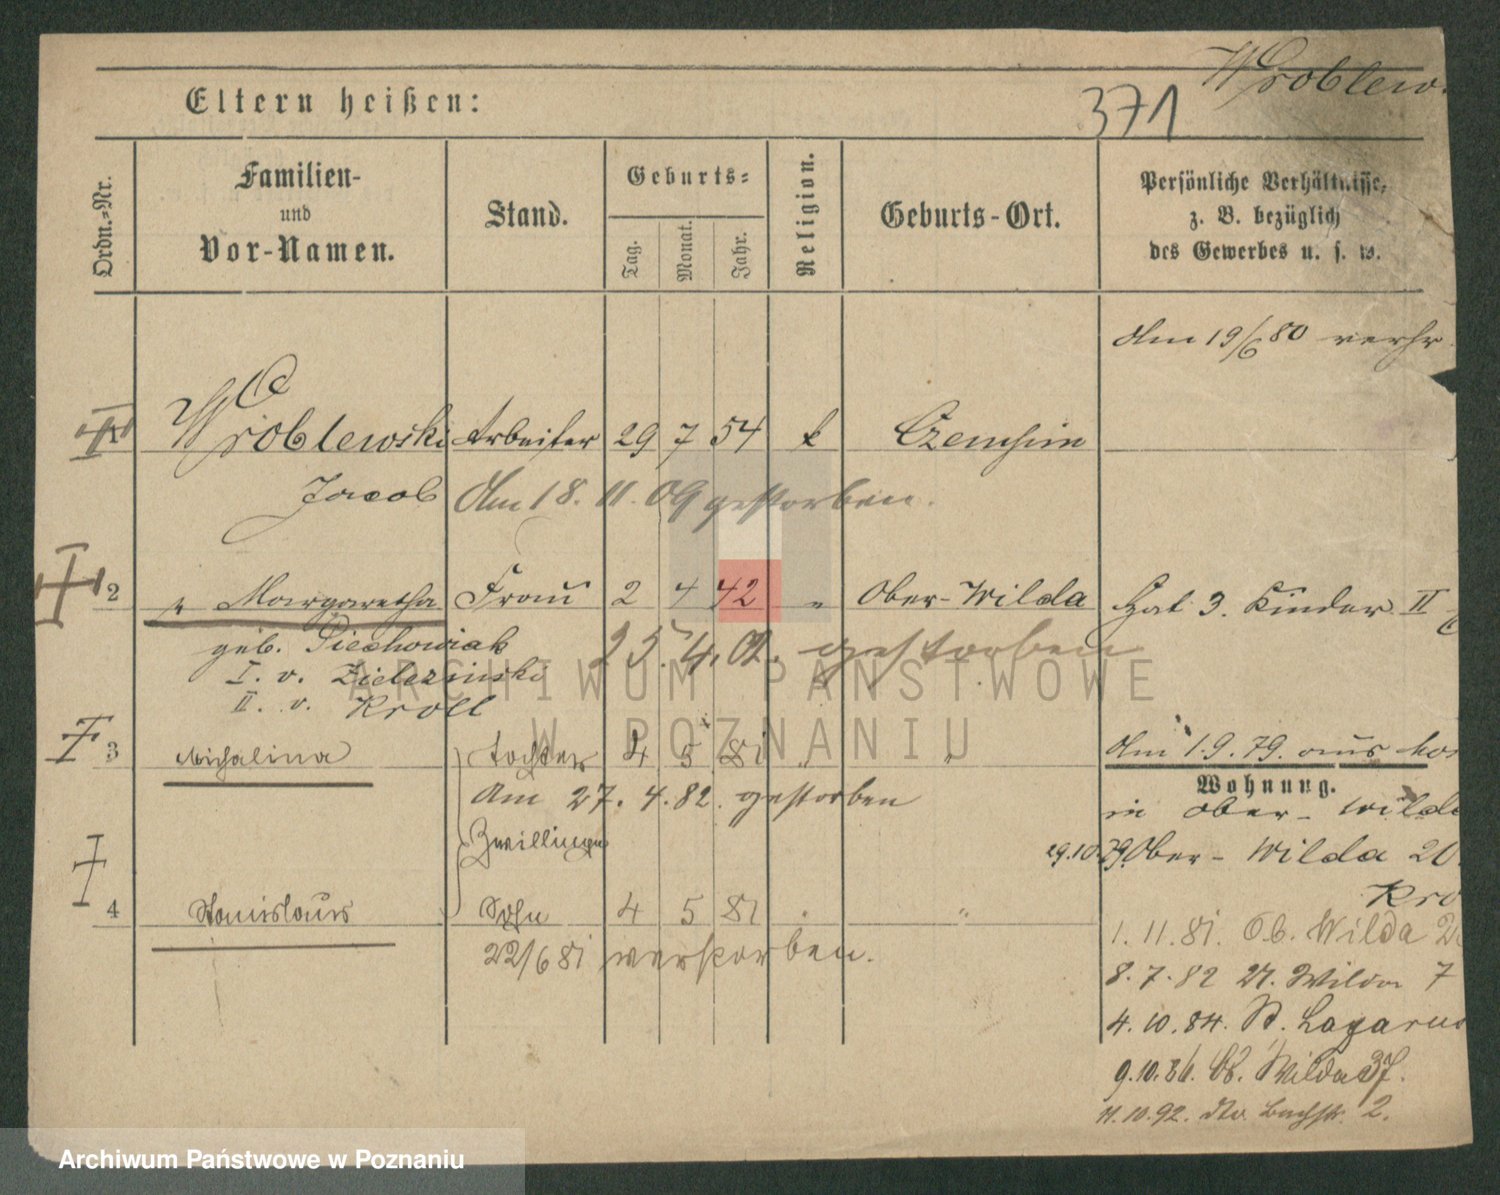 Wroblew
371
Eltern heißen:
Ordn.-Nr.
Familien-
und
Vor-Namen.
Stand.
Geburts-
Tag.
Monat.
Jahr.
Religion.
Geburts-Ort.
Persönliche Verhältnisse,
z. B. bezüglich
des Gewerbes u. s. w.
Am 19/6 80 verhr
1 Wroblewski Arbeiter 29 7 54 k Czempin
Jacob Am 18. 11. 09 gestorben.
2 " Margaretha Frau 2 4 42 " Ober-Wilda Hat 3. Kinder II
geb. Piechowiak 25. 4. 02. gestorben
I. v. Zielezinski
II. v. Kroll
3 Michalina Tochter 4 5 81 " " Am 1. 9. 79. aus
Wohnung.
Am 27. 4. 82. gestorben
in Ober-Wilda
Zwillinge
29.10.79 Ober-Wilda 20
Kro
4 Stanislaus Sohn 4 5 81 " "
1. 11. 81. Ob. Wilda
22/6 81 verstorben.
8. 7. 82 U. Wilda 7
4. 10. 84. St. Lazarus
9.10.86. Ob. Wilda 37.
11.10.92. dto Bachstr. 2.
ARCHIWUM PAŃSTWOWE
W POZNANIU
Archiwum Państwowe w Poznaniu